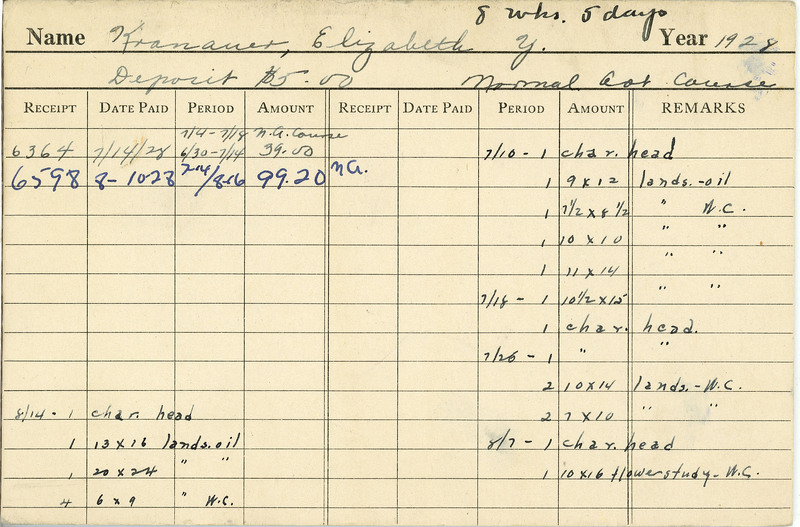 8 wks. 5 days
Name Kranauer, Elizabeth Y. Year 1928
Deposit $5.00 Normal Art Course
RECEIPT DATE PAID PERIOD AMOUNT RECEIPT DATE PAID PERIOD AMOUNT REMARKS
7/4-7/18 N.A. Course
6364 7/14/28 6/30-7/14 39.00 7/10-1 char. head
6598 8-10-28 7-14/8-16 99.20 NA. 1 9x12 lands.-oil
1 7½ x 8½ " W.C.
1 10 x 10 " "
1 11 x 14 " "
7/18-1 10½ x 15 " "
1 char. head.
7/26-1 " "
2 10x14 lands.-W.C.
8/14-1 char. head 2 7 x 10 " "
1 13 x 16 lands. oil 8/7-1 char. head
1 20 x 24 " " 1 10x16 flower study-W.C.
4 6 x 9 " W.C.